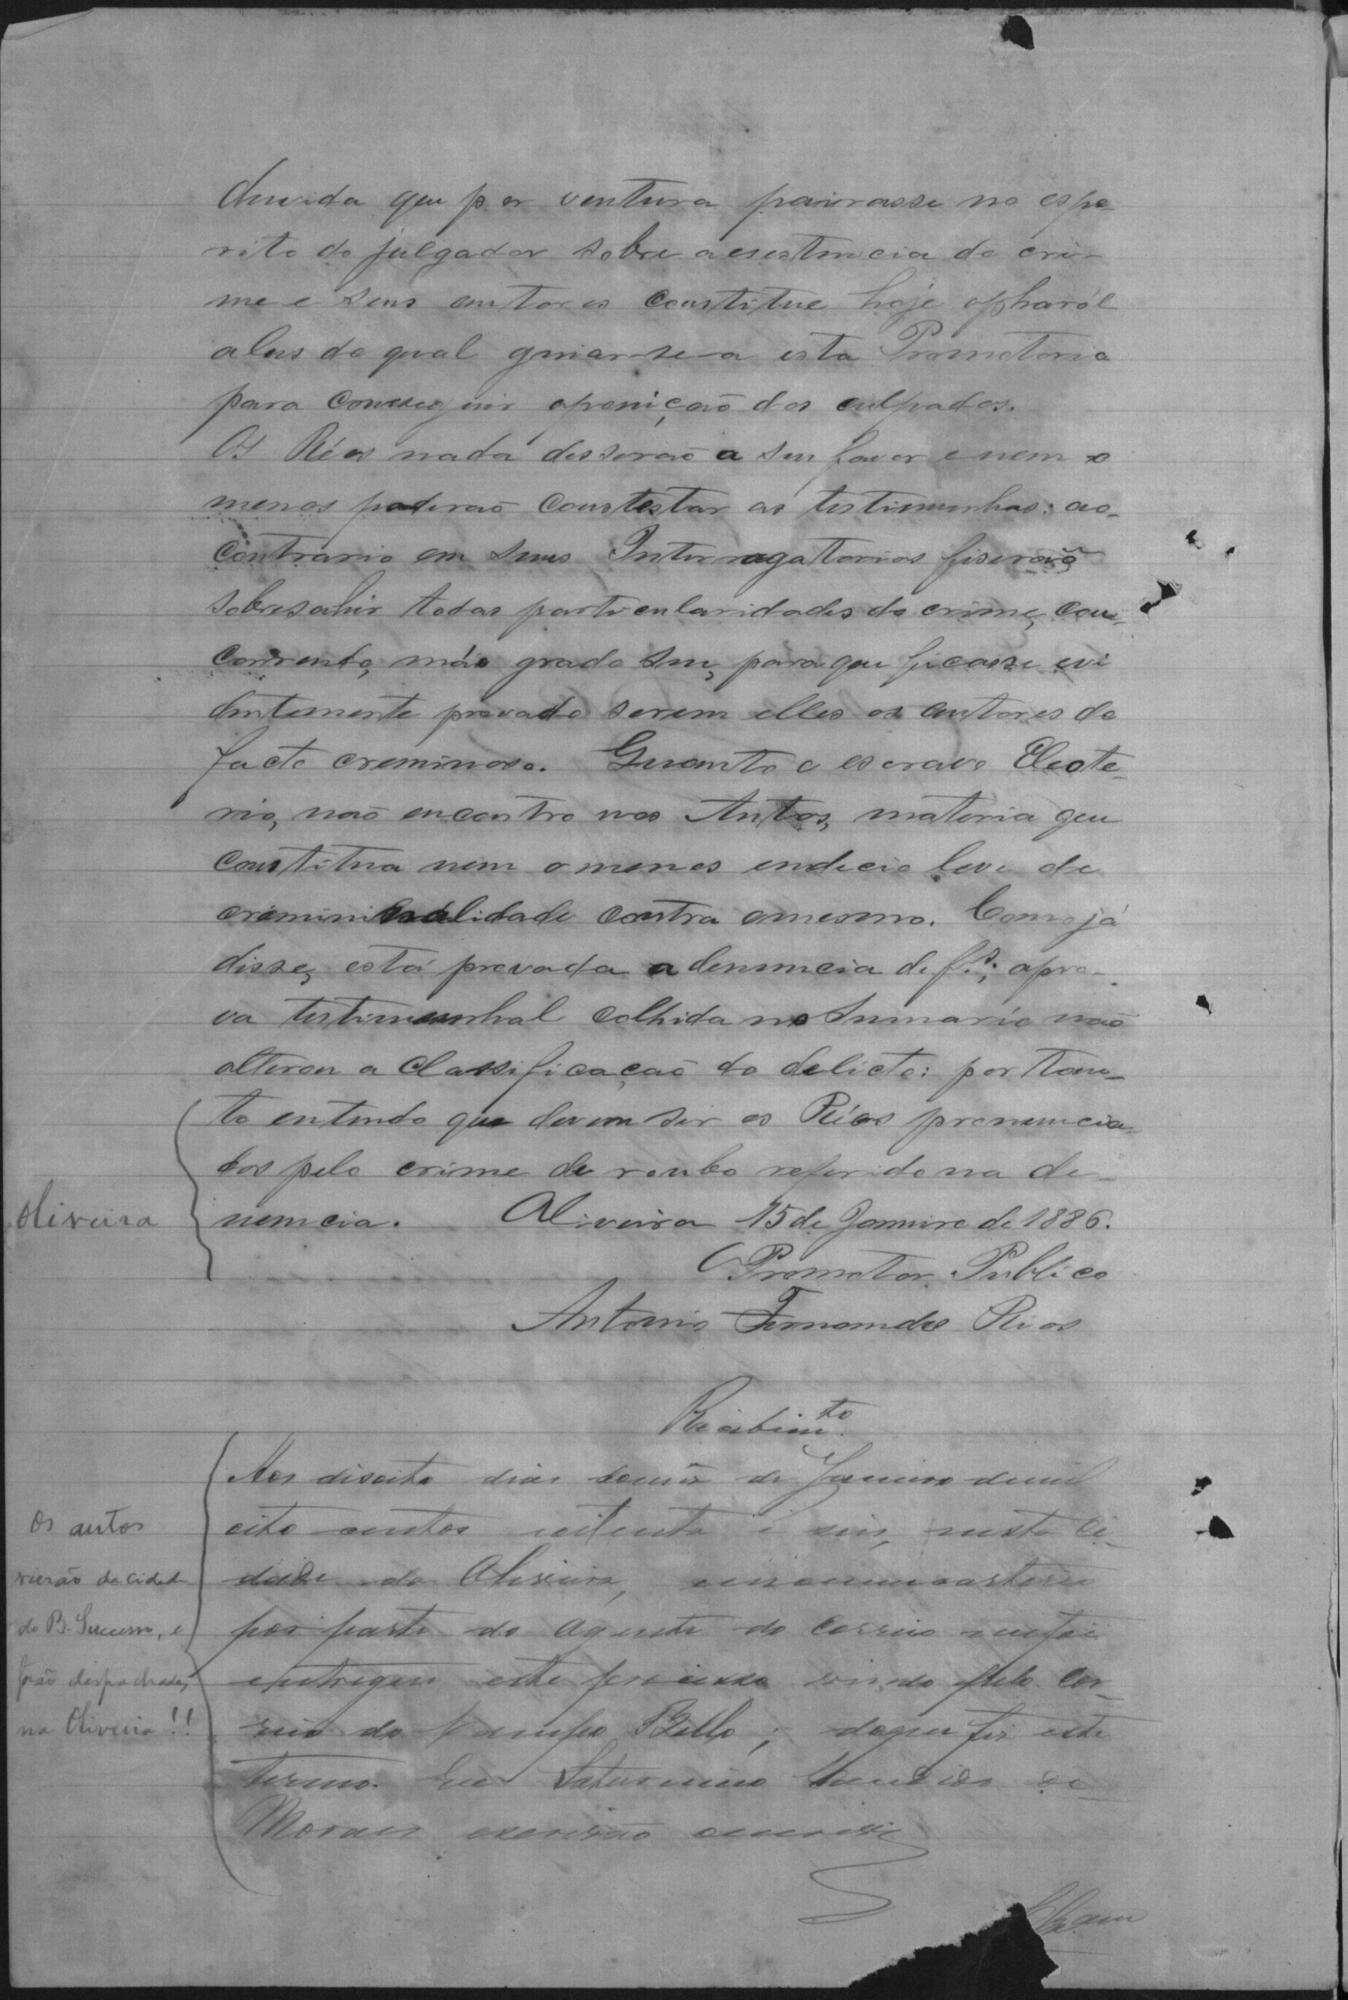 duvida que por ventura pairasse no espe-
rito do julgador sobre a esestencia do cri-
me e seus autores constitue hoje opharól
a lus do qual guiar-se-a esta Promotoria
para conseguir apenição dos culpados.
Os Réos nada disserão a seu favor e nem o
menos poderão contestar as testimunhas: ao-
contrario em seus Interrogatorios fiserão
sobresahir todas particularidades do crime, con-
correndo, máo grado seu, para que ficasse evi
dentemente provado serem elles os autores do
facto creminoso. Quanto o escravo Eleote-
rio, não encontro nos Autos, materia que
constitua nem o menos endecio leve de
creminalidade contra omesmo. Como já
disse, está provada a denuncia de fs.; apro-
va testimunhal colhida no Sumario não
alterou a classificação do delicto: portan-
to entendo que devem ser os Réos pronuncia-
dos pelo crime de roubo referido na de-
nuncia. Oliveira 15 de Janeiro de 1886.
Oliveira
O Promotor Publico
Antonio Fernandes Rios
Recebimto.
Aos disoito dias do mês de Janeiro de mil
oito centos oitenta e seis, nesta Ci-
dade da Oliveira, em meu cartorio
por parte do Agente do Correio me foi
entregue este processo vindo pelo Cor-
reio do Campo Bello; do que fiz este
termo. Eu Saturnino Candido de
Moraes escrivão o escrevi
Os autos
vierão da cidade
do B. Sucesso, e
forão despachados
na Oliveira!!